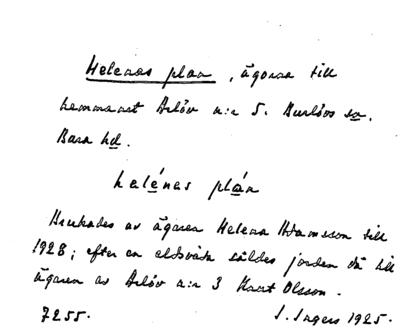 Helenas plan, ägorna till
hemmanet Arlöv n:r 5. Burlövs sn.
Bara hd.
helénas plán
Brukades av ägaren Helena Adamsson till
1928; efter en eldsvåda såldes jorden då till
ägaren av Arlöv n:r 3 Knut Olsson.
7255. I. Ingers 1925.